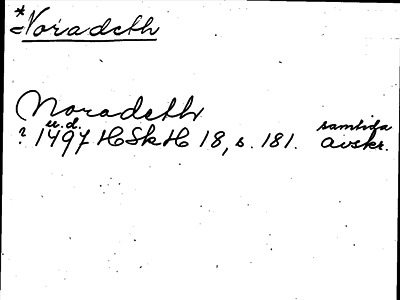 *
=Noradeth
Noradeth
u.d. samtida
? 1497 HSkH 18, s. 181. avskr.